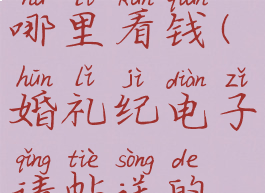 nǎ lǐ kàn qián
哪里看钱(
hūn lǐ jì diàn zǐ
婚礼纪电子
qǐng tiě sòng de
请帖送的